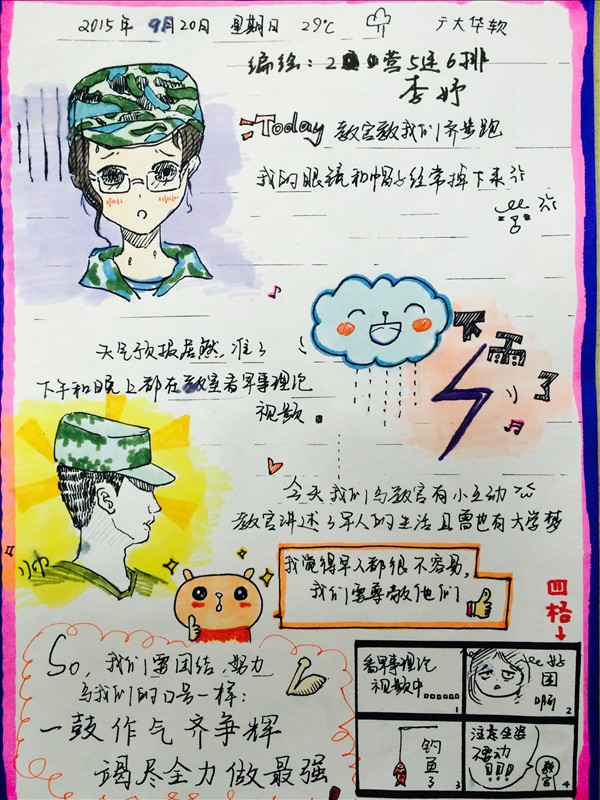 2015年 9月20日 星期日 29℃ 广大华软
编绘：2营5连6排
李妤
Today 教官教我们齐步跑
我的眼镜和帽子经常掉下来
天气预报居然准了！
下午和晚上都在教室看军事理论
视频。
下雨了
今天我们与教官有小互动
教官讲述了军人的生活且曾也有大学梦
帅
我觉得军人都很不容易，
我们需尊敬他们
四格
So，我们需团结，努力
与我们的口号一样：
一鼓作气齐争辉
竭尽全力做最强
看军事理论
视频中......
1
好
困
啊
2
钓
鱼
了
3
注意坐姿
不要动
!!!!
教官
4